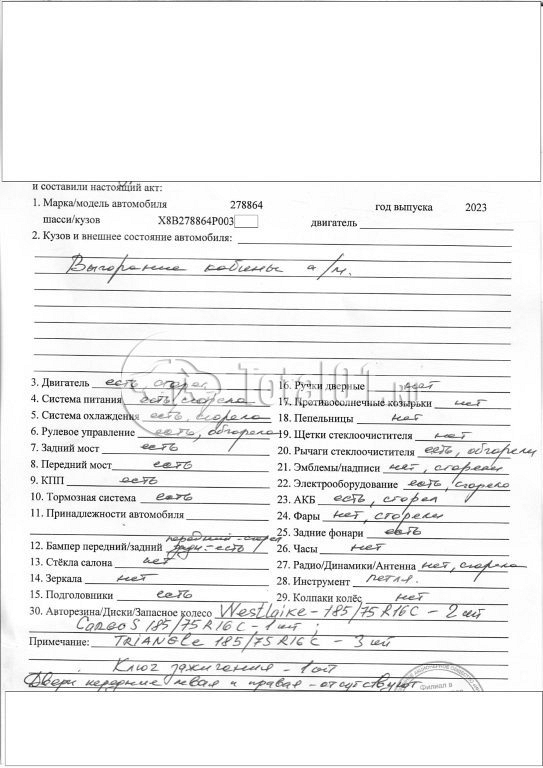 и составили настоящий акт:
1. Марка/модель автомобиля 278864 год выпуска 2023
шасси/кузов X8B278864P003 двигатель
2. Кузов и внешнее состояние автомобиля:
Выгорание кабины а/м.
Total01.ru
3. Двигатель есть, сгорел 16. Ручки дверные нет
4. Система питания есть, сгорела 17. Противосолнечные козырьки нет
5. Система охлаждения есть, сгорела 18. Пепельницы нет
6. Рулевое управление есть, обгорело 19. Щетки стеклоочистителя нет
7. Задний мост есть 20. Рычаги стеклоочистителя есть, обгорели
8. Передний мост есть 21. Эмблемы/надписи нет, сгорели
9. КПП есть 22. Электрооборудование есть, сгорело
10. Тормозная система есть 23. АКБ есть, сгорел
11. Принадлежности автомобиля 24. Фары нет, сгорели
25. Задние фонари есть
12. Бампер передний/задний передний - сгорел задн. - есть 26. Часы нет
13. Стёкла салона нет 27. Радио/Динамики/Антенна нет, сгорело
14. Зеркала нет 28. Инструмент
15. Подголовники есть 29. Колпаки колёс нет
30. Авторезина/Диски/Запасное колесо Westlaike - 185/75R16C - 2 шт
CargoS 185/75R16C - 1 шт;
Примечание: TRIANGLE 185/75R16C - 3 шт
Ключ зажигания - 1 шт
Двери передние левая и правая - отсутствуют
Филиал в